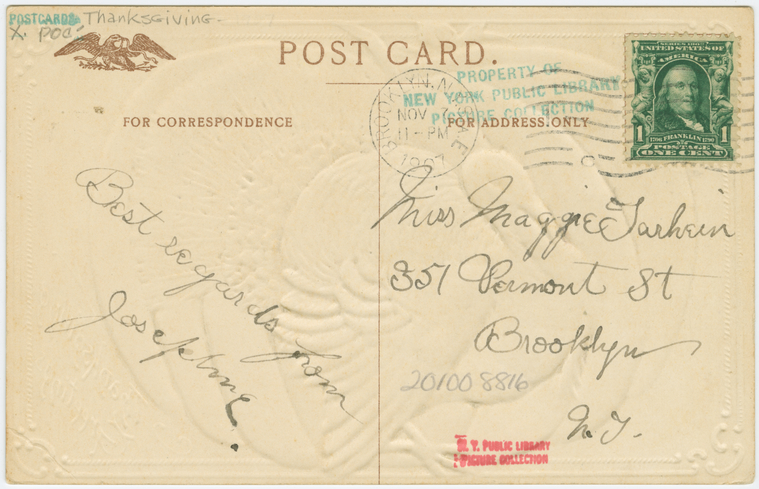 POSTCARDS Thanksgiving.
POST CARD.
FOR CORRESPONDENCE
FOR ADDRESS ONLY
PROPERTY OF
NEW YORK PUBLIC LIBRARY
PICTURE COLLECTION
BROOKLYN, N.
NOV
11-PM
1907
SERIES 1902
UNITED STATES OF
AMERICA
1 FRANKLIN 1
POSTAGE
ONE CENT
Best regards from
Josephine.
Miss Maggie
351 Vermont St
Brooklyn
N.Y.
201008816
N. Y. PUBLIC LIBRARY
PICTURE COLLECTION